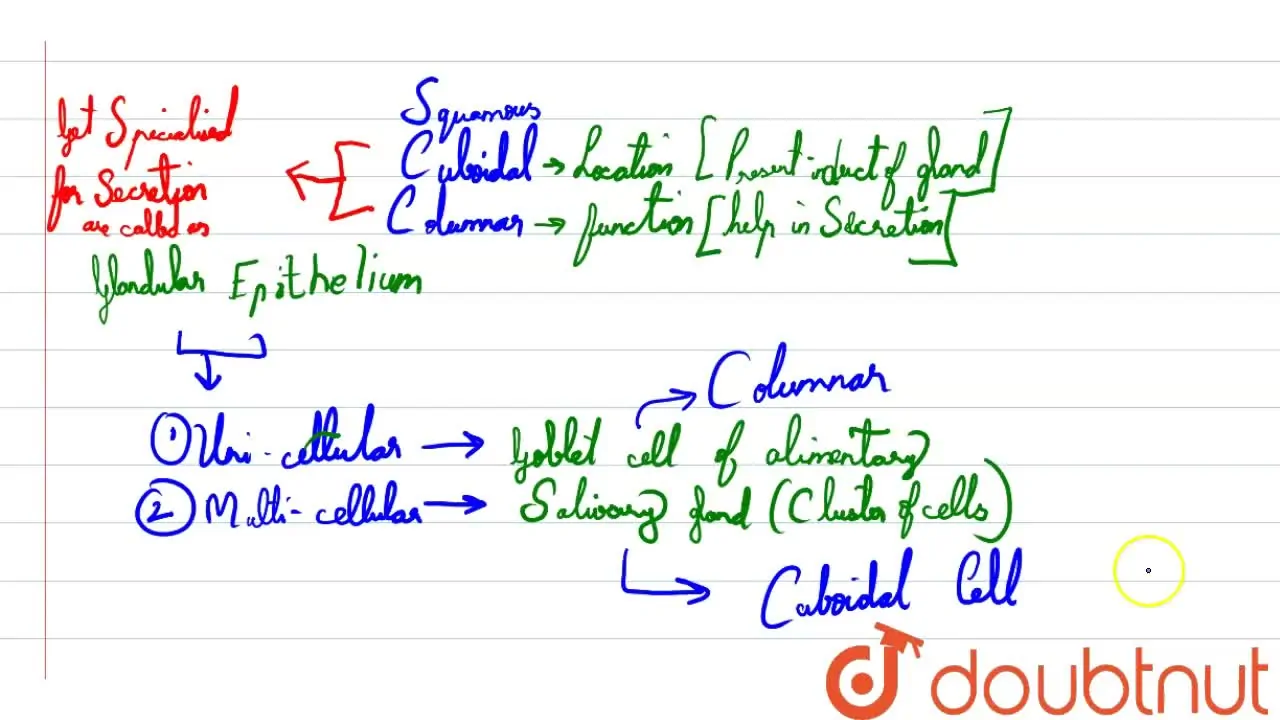 Squamous
Get Specialised
Cuboidal → Location [Present in duct of gland]
for Secretion
Columnar → function [help in Secretion]
are called as
Glandular Epithelium
Columnar
① Uni-cellular → Goblet cell of alimentary
② Multi-cellular → Salivary gland (Cluster of cells)
Cuboidal Cell
doubtnut